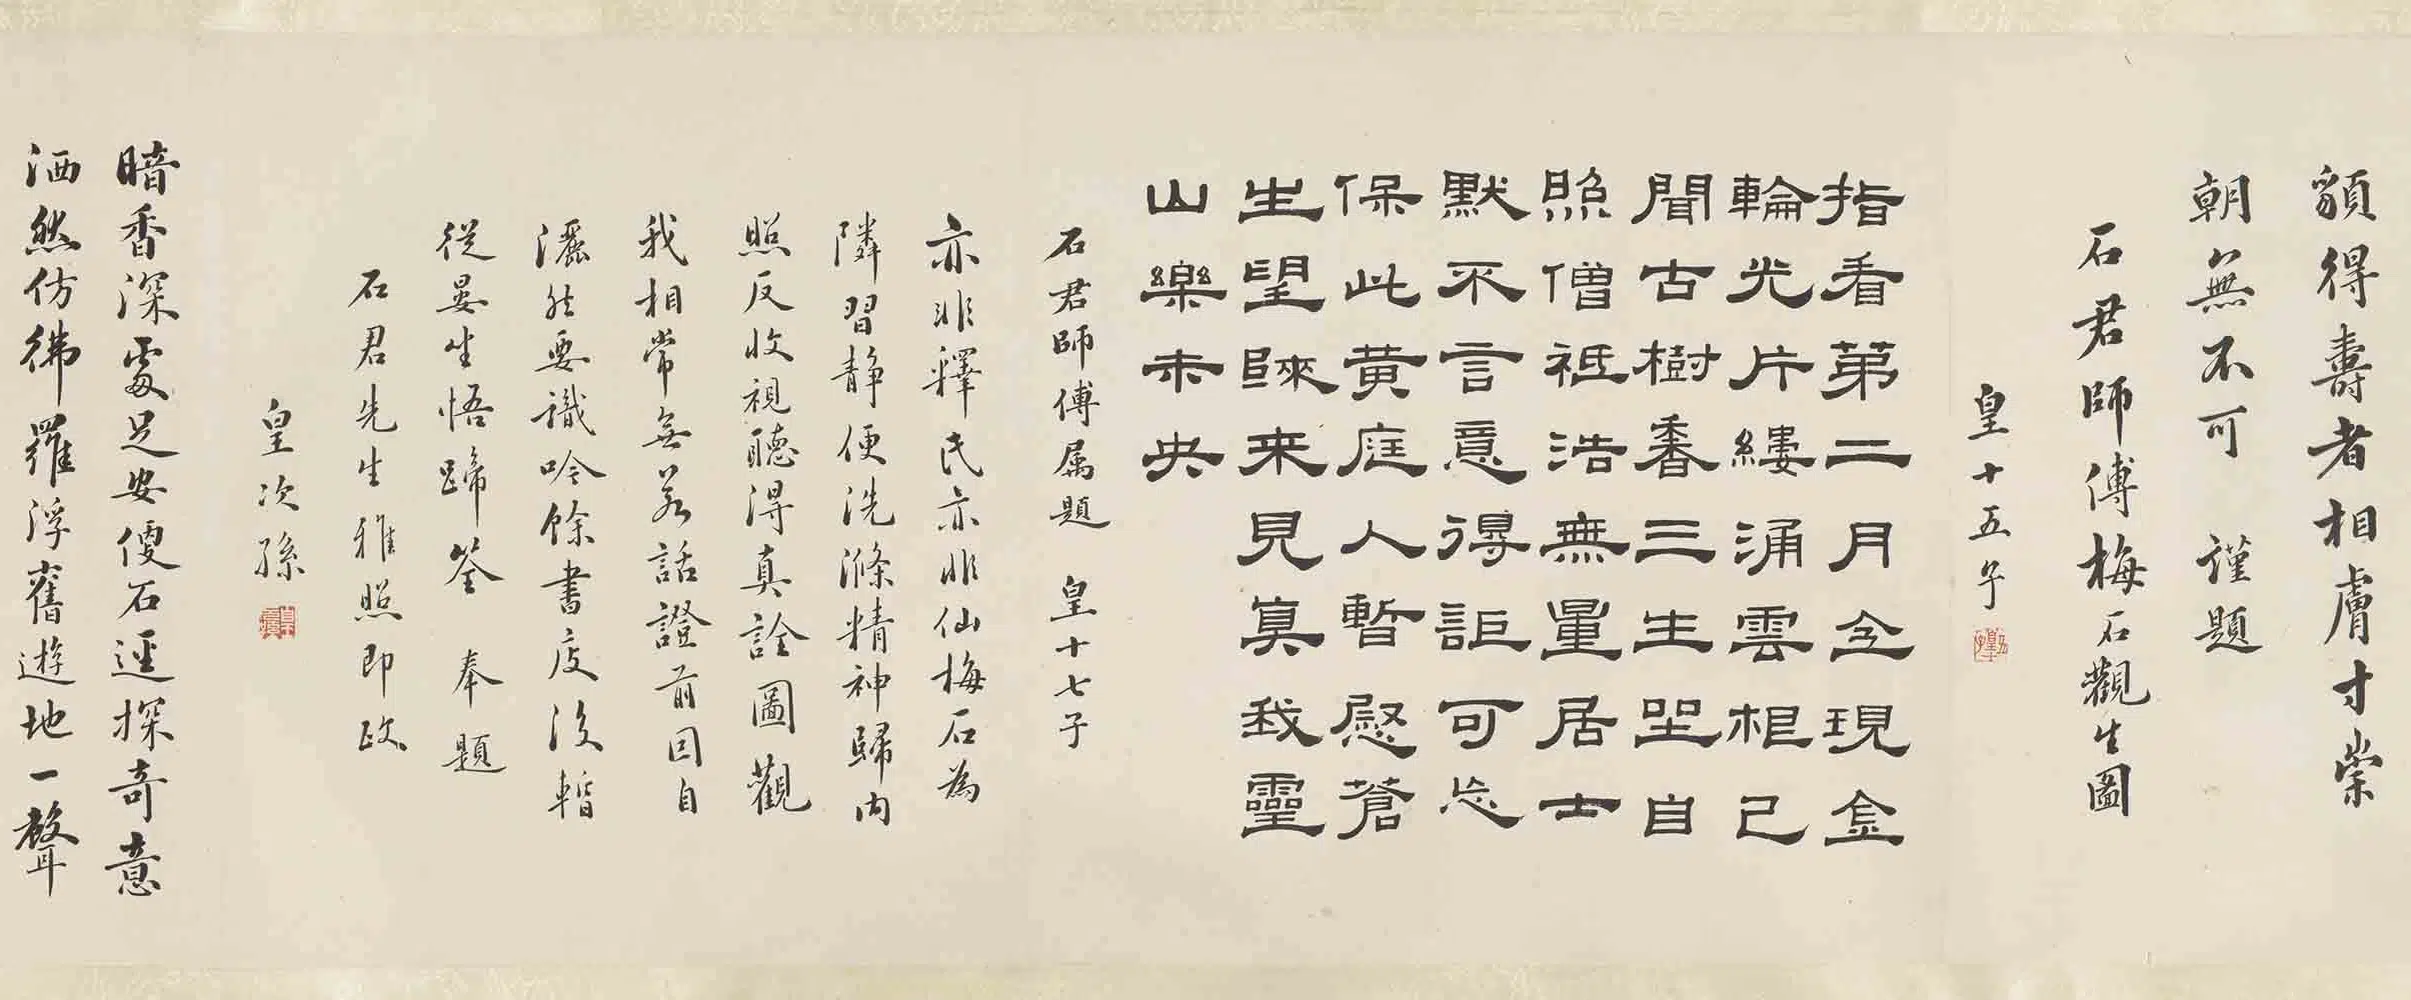 額得壽者相膚寸崇
朝無不可 謹題
石君師傅梅石觀生圖
皇十五子
指看第二月今現金
輪光片縷涌雲相己
聞古樹香三生坐自
照僧祇浩無量居士
默不言意得詎可忘
保此黃庭人暫慰蒼
生望陝来見真我靈
山樂未央
石君師傅属題 皇十七子
亦非釋氏亦非仙梅石為
隣習静便洗滌精神歸内
照反收視聽得真詮圖觀
我相常無著話證前因自
灑然要識吟餘書度後暫
從晏坐悟蹄筌 奉題
石君先生雅照即政
皇次孫
暗香深處足安便石逕探奇意
洒然仿彿羅浮舊遊地一聲